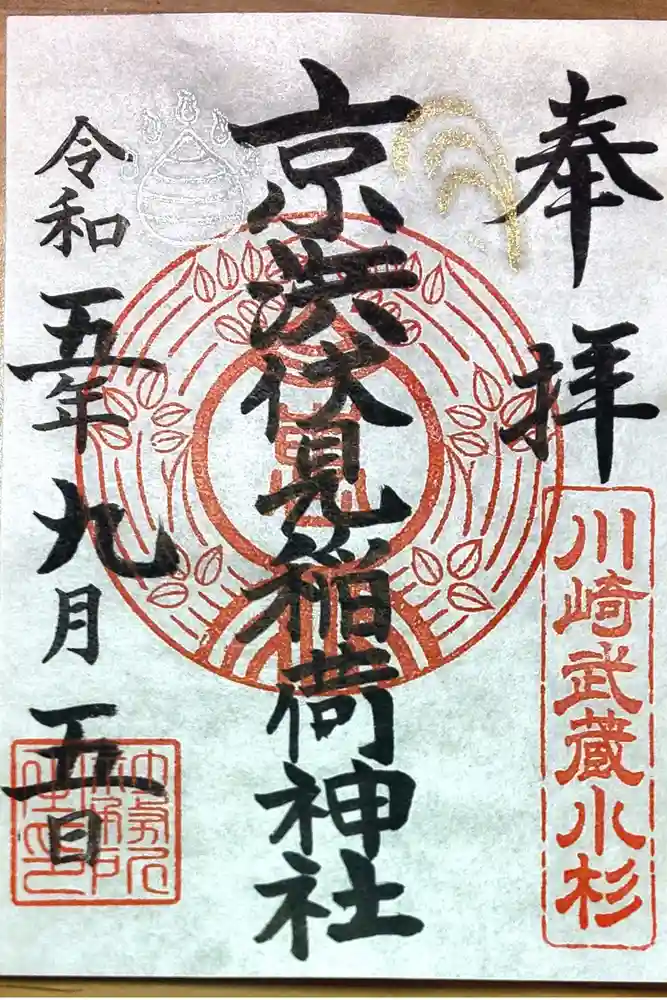 奉拝
川崎武蔵小杉
京濱伏見稲荷神社
令和五年九月五日
社務所